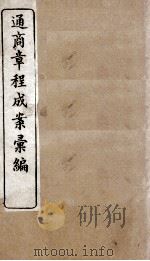 通商章程成案彙編
貓狗
mtoou.info